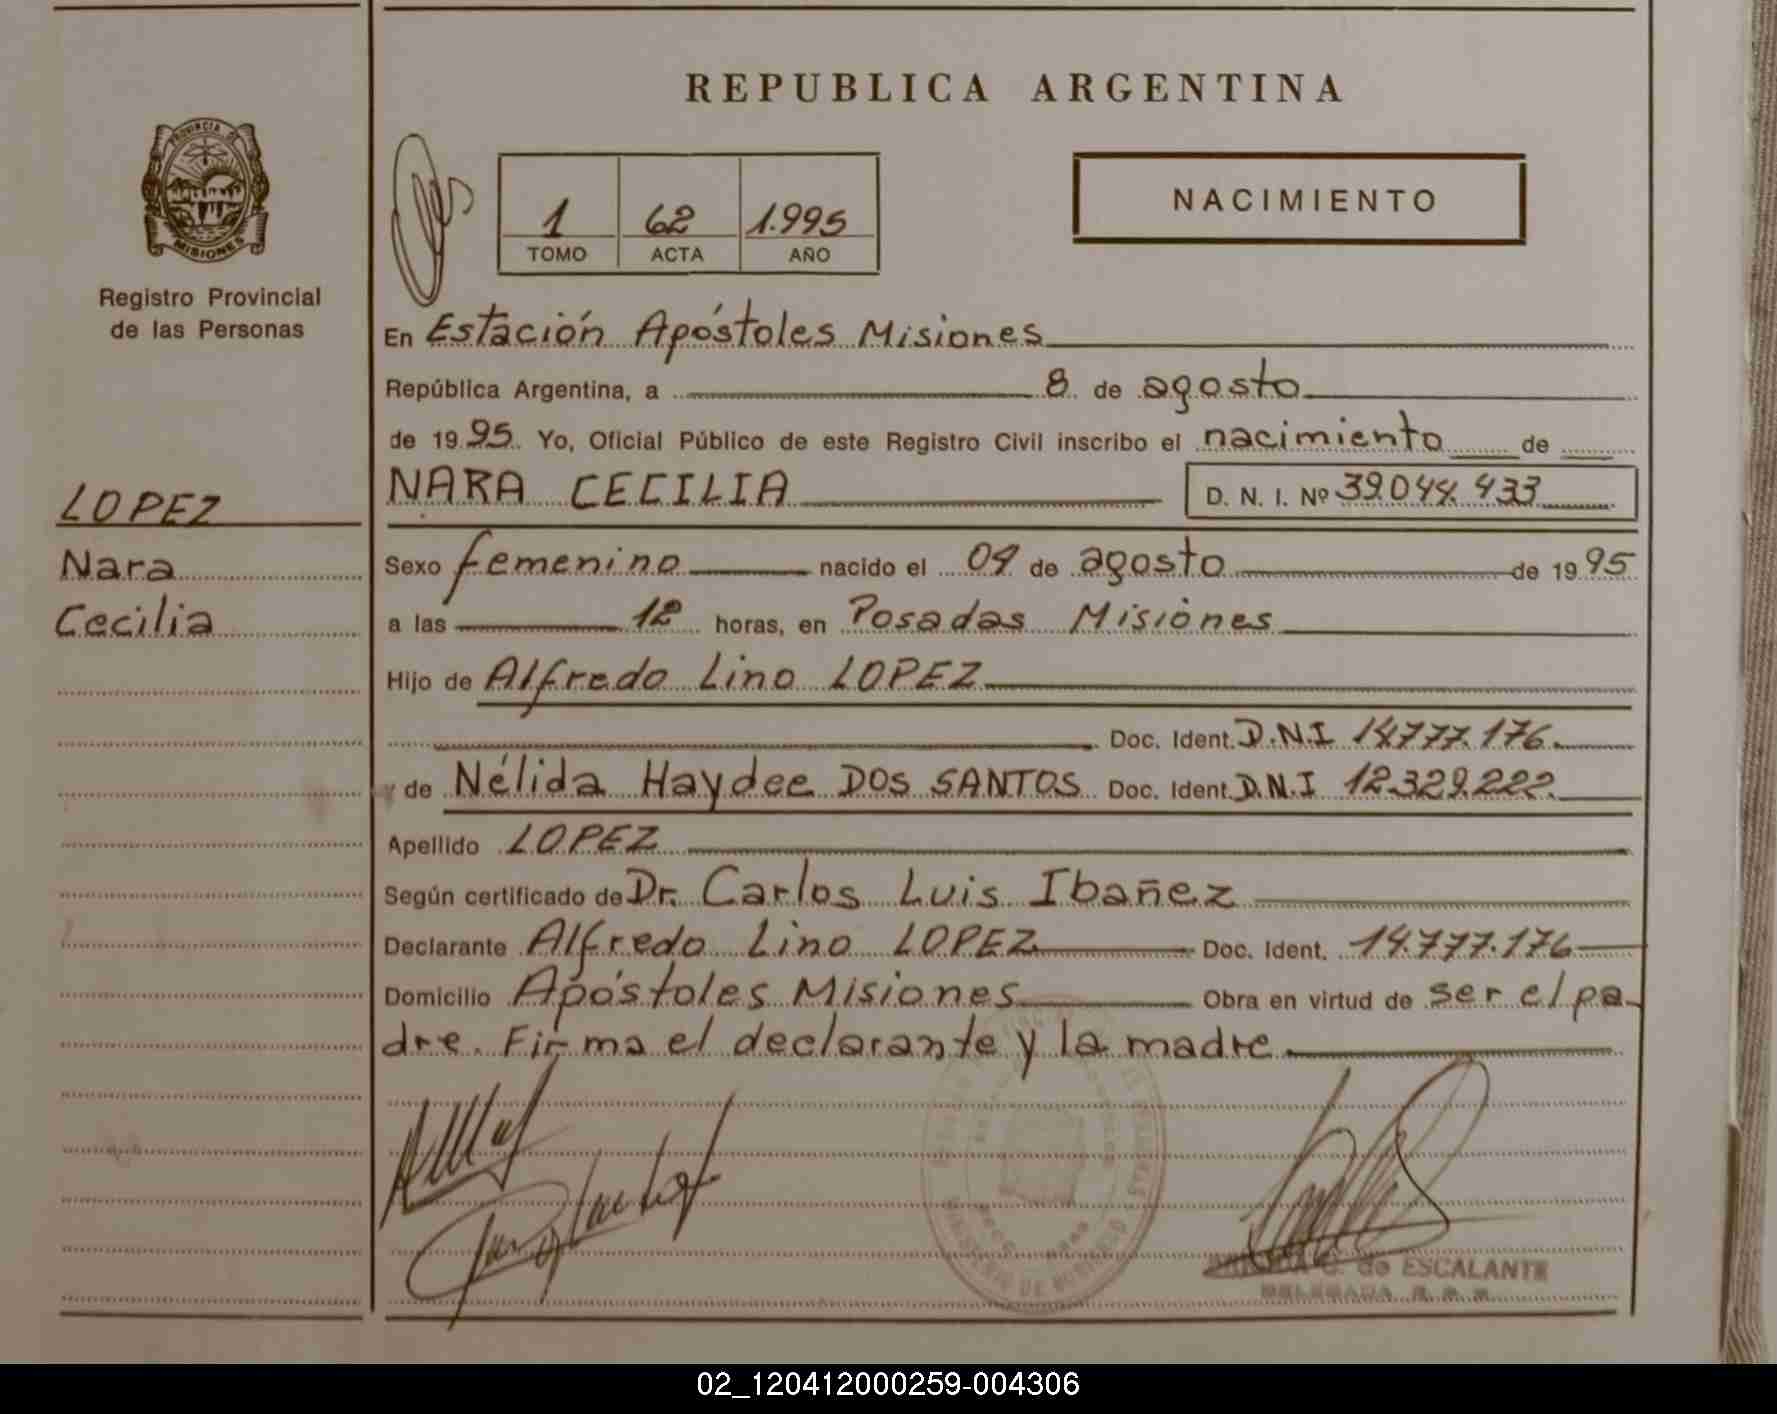 REPUBLICA ARGENTINA
PROVINCIA DE
MISIONES
Registro Provincial
de las Personas
1 62 1.995
TOMO ACTA AÑO
NACIMIENTO
En Estación Apóstoles Misiones
República Argentina, a 8 de agosto
de 1995 Yo, Oficial Público de este Registro Civil inscribo el nacimiento de
NARA CECILIA D. N. I. Nº 39.044.433
LOPEZ
Nara
Cecilia
Sexo femenino nacido el 04 de agosto de 1995
a las 12 horas, en Posadas Misiones
Hijo de Alfredo Lino LOPEZ
Doc. Ident. D.N.I 14.777.176.
y de Nélida Haydee DOS SANTOS Doc. Ident. D.N.I 12.329.222.
Apellido LOPEZ
Según certificado de Dr. Carlos Luis Ibañez
Declarante Alfredo Lino LOPEZ Doc. Ident. 14.777.176
Domicilio Apóstoles Misiones Obra en virtud de ser el pa-
dre. Firma el declarante y la madre
de ESCALANTE
DELEGADA
02_120412000259-004306